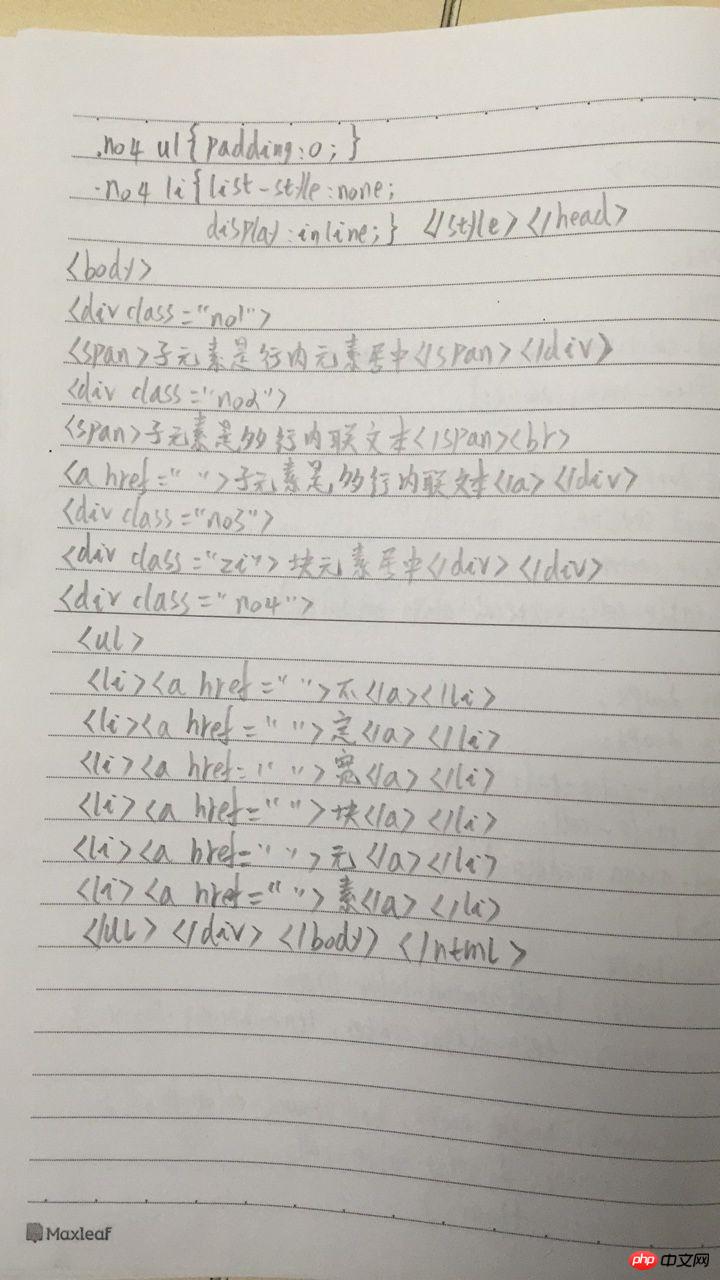 .no4 ul{padding:0;}
.no4 li{list-style:none;
display:inline;} </style></head>
<body>
<div class="no1">
<span>子元素是行内元素居中</span></div>
<div class="no2">
<span>子元素是多行内联文本</span><br>
<a href=" ">子元素是多行内联文本</a></div>
<div class="no3">
<div class="zi">块元素居中</div></div>
<div class="no4">
<ul>
<li><a href=" ">不</a></li>
<li><a href=" ">定</a></li>
<li><a href=" ">宽</a></li>
<li><a href=" ">块</a></li>
<li><a href=" ">元</a></li>
<li><a href=" ">素</a></li>
</ul></div></body></html>
Maxleaf
php中文网